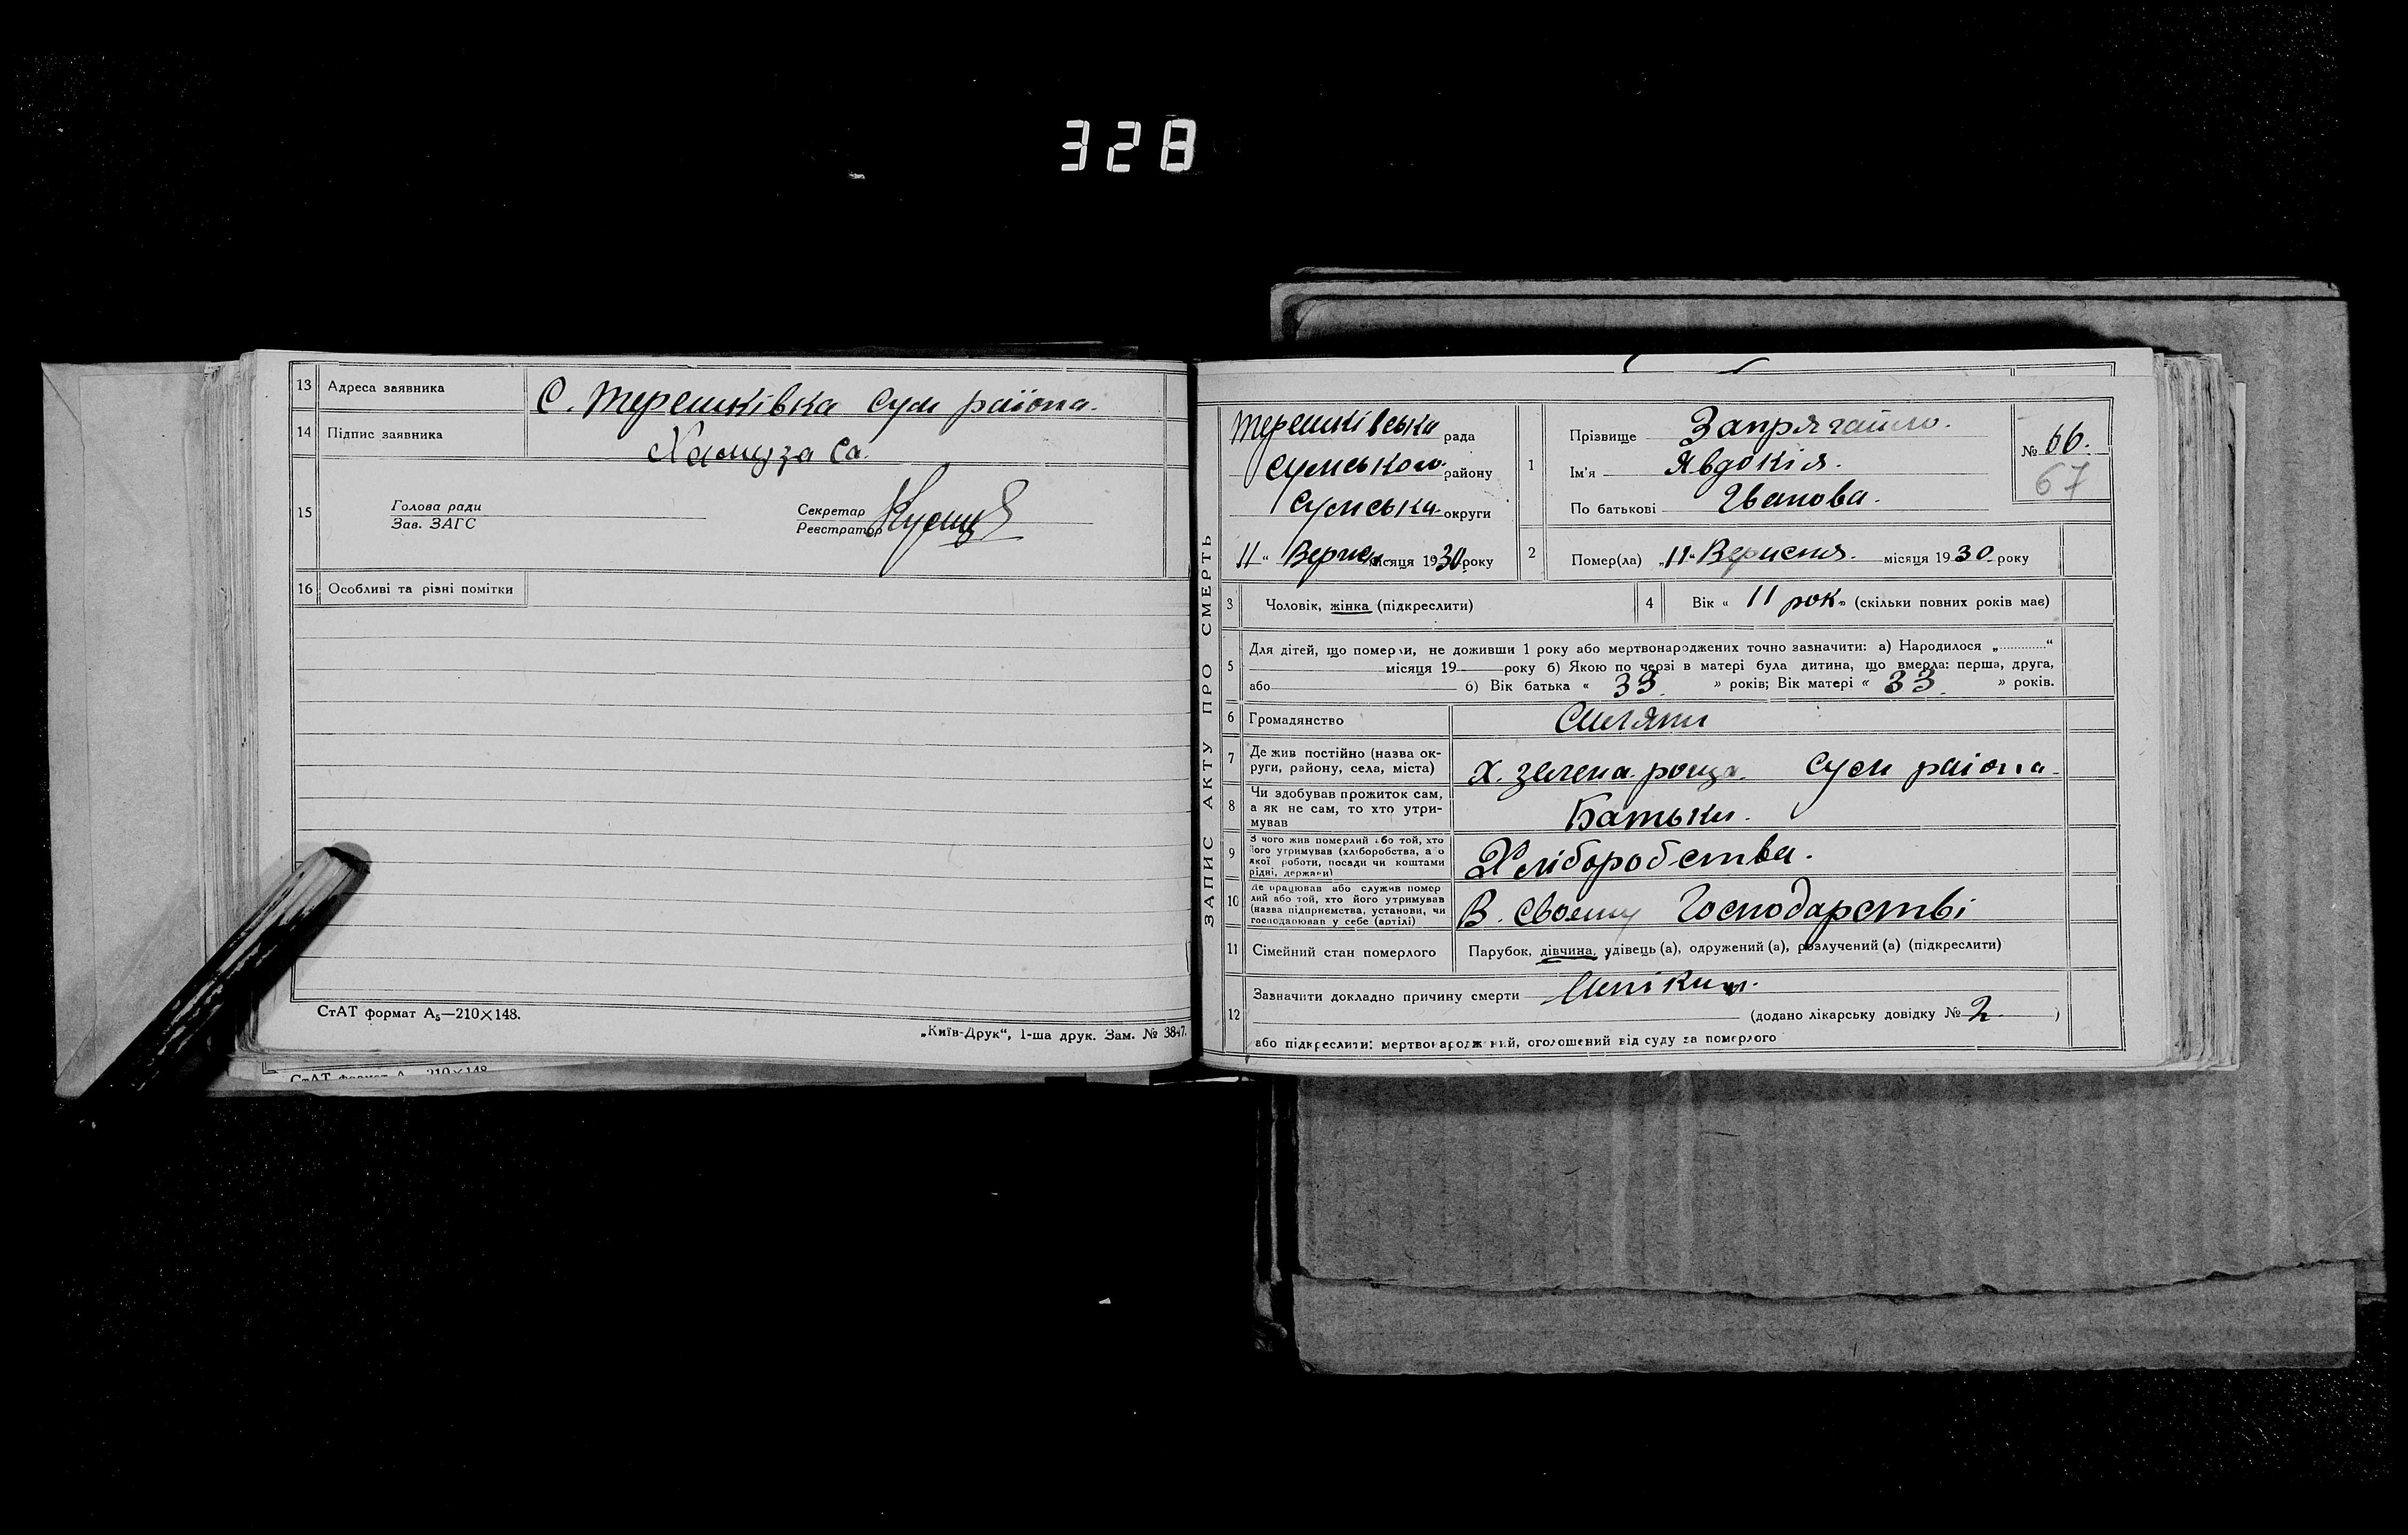 328
13 Адреса заявника С. Терешківка Сум раіона.
14 Підпис заявника Хамуза Са.
15 Голова ради
Зав. ЗАГС
Секретар
Реєстратор
16 Особливі та різні помітки
СтАТ формат А5—210×148.
„Київ-Друк“, 1-ша друк. Зам. № 3847.
СтАТ формат А 210×148
ЗАПИС АКТУ ПРО СМЕРТЬ
Терешківська рада
Сумського району
Сумська округи
11 “ Верисн місяця 1930 року
1 Прізвище Запрягайло.
Ім'я Явдокія.
По батькові Іванова.
№ 66.
67
2 Помер(ла) „11“ Верисня. місяця 1930 року
3 Чоловік, жінка (підкреслити)
4 Вік « 11 рок » (скільки повних років має)
5 Для дітей, що померли, не доживши 1 року або мертвонароджених точно зазначити: а) Народилося „............“
місяця 19 року б) Якою по черзі в матері була дитина, що вмерла: перша, друга,
або б) Вік батька « 33 » років; Вік матері « 33 » років.
6 Громадянство
7 Де жив постійно (назва ок-
руги, району, села, міста) Х. зелена роща. Сум раіона
8 Чи здобував прожиток сам,
а як не сам, то хто утри-
мував Батьки.
9 З чого жив померлий або той, хто
його утримував (хліборобства, або
якої роботи, посади чи коштами
рідні, держави) Хліборобства.
10 Де працював або служив помер
лий або той, хто його утримував
(назва підприємства, установи, чи
господарював у себе (артілі) В. своєму Господарстві
11 Сімейний стан померлого Парубок, дівчина, удівець (а), одружений (а), розлучений (а) (підкреслити)
12 Зазначити докладно причину смерти
(додано лікарську довідку № 2 )
або підкреслити: мертвонароджений, оголошений від суду за померлого